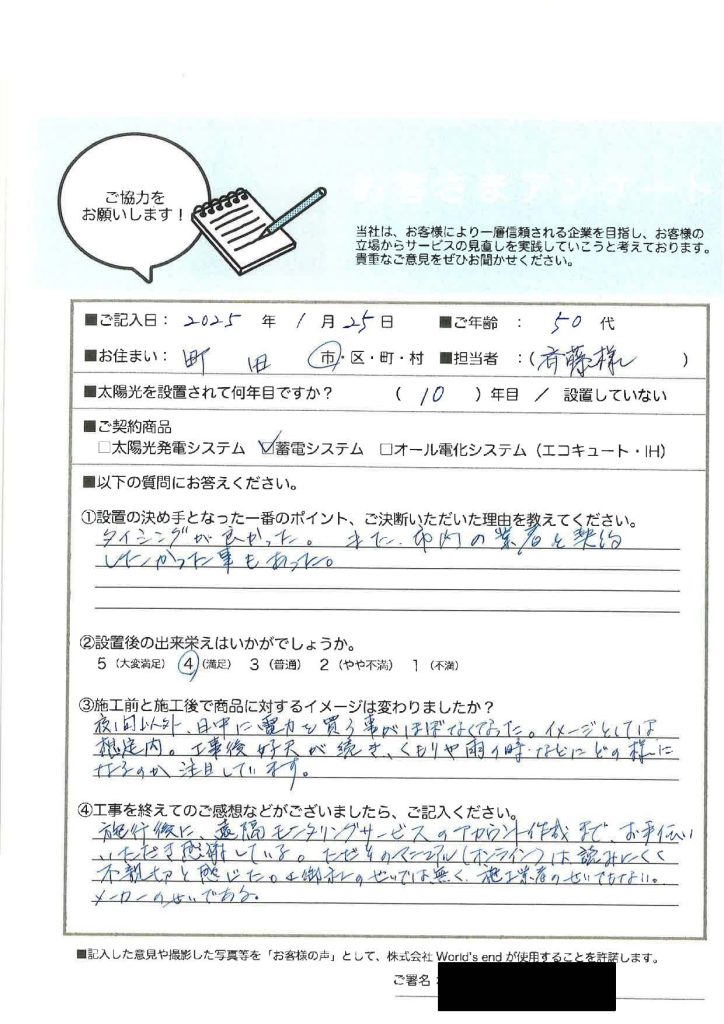 ご協力を
お願いします！
お客さまアンケート
当社は、お客様により一層信頼される企業を目指し、お客様の
立場からサービスの見直しを実践していこうと考えております。
貴重なご意見をぜひお聞かせください。
■ご記入日： 2025 年 1 月 25 日 ■ご年齢 ： 50 代
■お住まい： 町田 市・区・町・村 ■担当者 ：（斉藤様 ）
■太陽光を設置されて何年目ですか？ （ 10 ）年目 ／ 設置していない
■ご契約商品
□太陽光発電システム ☑蓄電システム □オール電化システム（エコキュート・IH）
■以下の質問にお答えください。
①設置の決め手となった一番のポイント、ご決断いただいた理由を教えてください。
タイミングが良かった。また、市内の業者と契約
したかった事もあった。
②設置後の出来栄えはいかがでしょうか。
5（大変満足） 4（満足） 3（普通） 2（やや不満） 1（不満）
③施工前と施工後で商品に対するイメージは変わりましたか？
夜間以外、日中に電力を買う事がほぼなくなった。イメージとしては
想定内。工事後好天が続き、くもりや雨の時などにどの様に
なるのか注目しています。
④工事を終えてのご感想などがございましたら、ご記入ください。
施行後に、遠隔モニタリングサービスのアカウント作成まで、お手伝い
いただき感謝している。ただそのマニュアル(オンライン)は読みにくく
不親切と感じた。御社のせいでは無く、施工業者のせいでもない。
メーカーのせいである。
■記入した意見や撮影した写真等を「お客様の声」として、株式会社 World's end が使用することを許諾します。
ご署名：